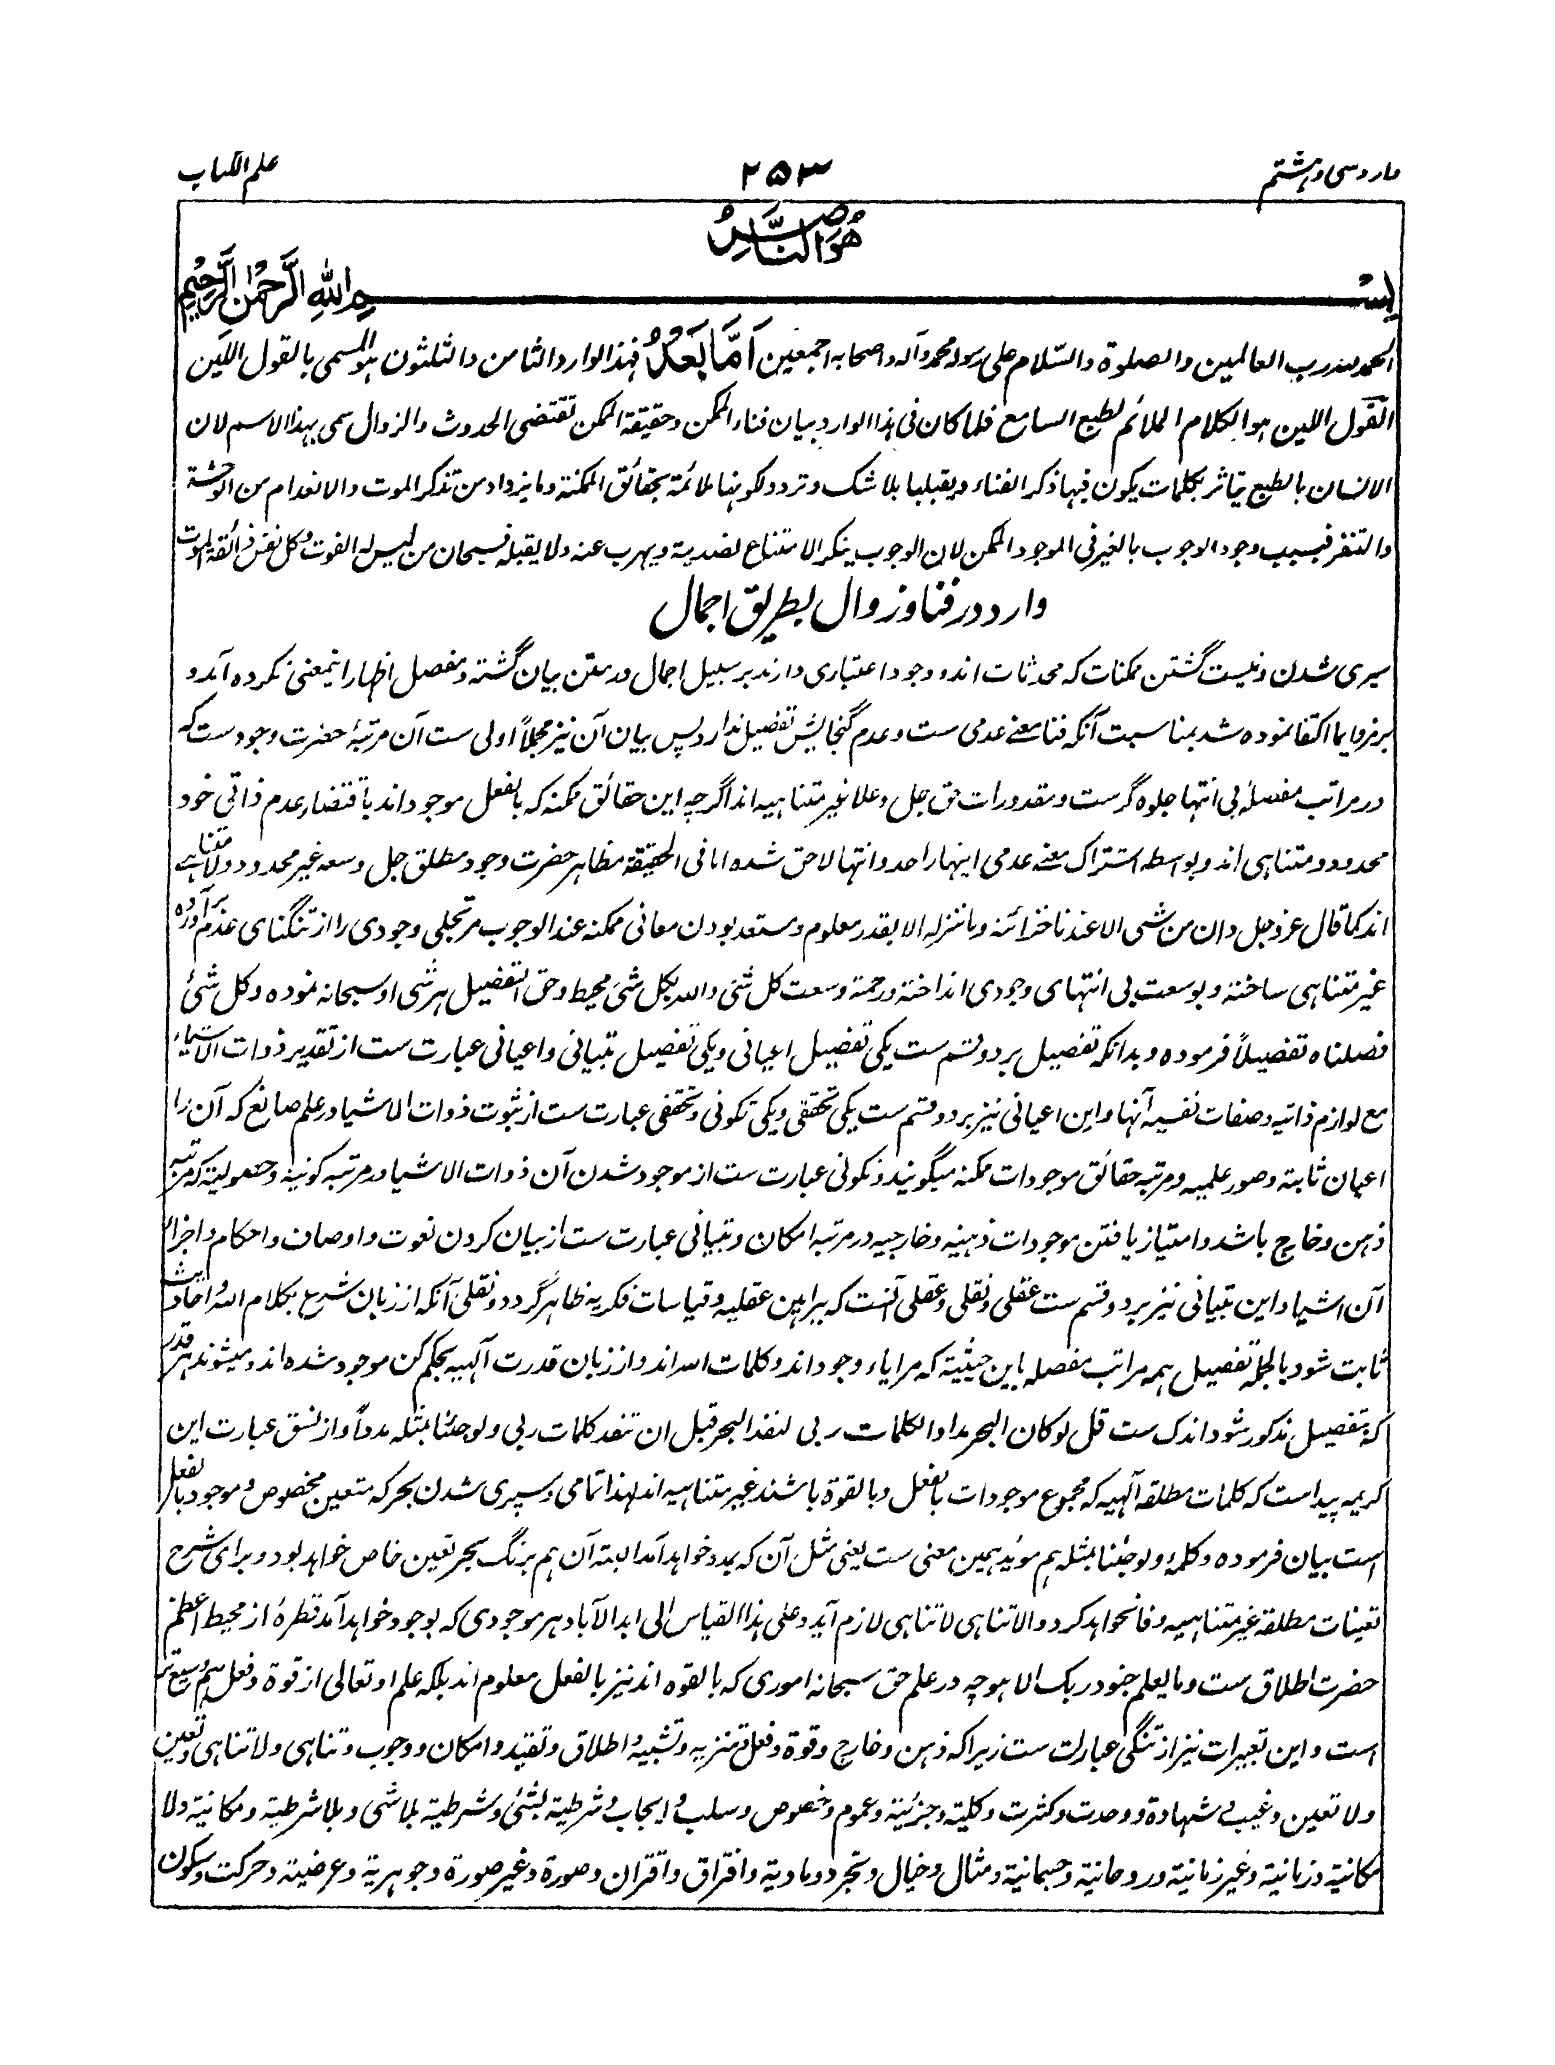 وارد سی و هشتم
۲۵۳
علم الکتاب
هُوَ النَّاصِرُ
بِسْمِ اللهِ الرَّحْمٰنِ الرَّحِيْمِ
الحمد لله رب العالمين والصلوة والسّلام على رسوله محمد وآله واصحابه اجمعين اَمَّا بَعْدُ فهذا الوارد الثامن والثلثون هو المسمى بالقول اللّين
القول اللين هو الكلام الملائم لطبع السامع فلما كان فى هذا الوارد بيان فناء الممكن وحقيقة الممكن تقتضى الحدوث والزوال سمى بهذا الاسم لان
الانسان بالطبع يتاثر بكلمات يكون فيها ذكر الفناء ويقبلها بلا شك وتردد لكونها ملائمة بحقائق الممكنة وما يزداد من تذكر الموت والانعدام من الوحشة
والتنفر فبسبب وجود الوجوب بالغير فى الموجود الممكن لان الوجوب ينكر الامتناع لضديه ويهرب عنه ولا يقبله فسبحان من ليس له الفوت وكل نفس ذائقة الموت
وارد در فنا و زوال بطریق اجمال
سپری شدن و نیست گشتن ممکنات که محدثات اند و وجود اعتباری دارند بر سبیل اجمال در متن بیان گشته و مفصل اظهار اینمعنی نکرده آمد و
برمز و ایما اکتفا نموده شد بمناسبت آنکه فنا معنے عدمی ست و عدم گنجایش تفصیل ندارد پس بیان آن نیز مجملاً اولی ست آن مرتبهٔ حضرت وجود ست که
در مراتب مفصلهٔ بی انتها جلوه گرست و مقدورات حق جل وعلا غیر متناهیه اند اگرچه این حقائق ممکنه که بالفعل موجود اند باقتضاء عدم ذاتی خود
محدود و متناهی اند و بواسطه اشتراک معنے عدمی اینها را حد و انتها لاحق شده اما فی الحقیقة مظاهر حضرت وجود مطلق جل وسعه غیر محدود و لا متناهے
اند کما قال عز وجل وان من شی الا عندنا خزائنه وما ننزله الا بقدر معلوم و مستعد بودن معانی ممکنه عند الوجوب مر تجلی وجودی را از تنگنای عدم بر آورده
غیر متناهی ساخته و بوسعت بی انتهای وجودی انداخته ورحمة وسعت کل شئ والله بکل شئ محیط و حق التفصیل هر شی او سبحانه نموده وکل شئ
فصلناه تفصیلاً فرموده و بدانکه تفصیل بر دو قسم ست یکی تفصیل اعیانی و یکی تفصیل تبیانی و اعیانی عبارت ست از تقدیر ذوات الاشیاء
مع لوازم ذاتیه و صفات نفسیه آنها و این اعیانی نیز بر دو قسم ست یکی تحققی و یکی تکونی و تحققی عبارت ست از ثبوت ذوات الاشیا در علم صانع که آن را
اعیان ثابته و صور علمیه و مرتبه حقائق موجودات ممکنه میگویند و تکونی عبارت ست از موجود شدن آن ذوات الاشیا در مرتبه کونیة و حصولیة که مرتبه
ذهن و خارج باشد و امتیاز یافتن موجودات ذهنیه و خارجیه در مرتبه امکان و تبیانی عبارت ست از بیان کردن نعوت و اوصاف و احکام و اجزای
آن اشیا و این تبیانی نیز بر دو قسم ست عقلی و نقلی و عقلی آنست که ببراهین عقلیه و قیاسات فکریه ظاهر گردد و نقلی آنکه از زبان شرع بکلام الله و احادیث
ثابت شود بالجمله تفصیل همه مراتب مفصله باین حیثیة که مرایاء وجود اند و کلمات الله اند و از زبان قدرت آلهیه بحکم کن موجود شده اند و میشوند هر قدر
که بتفصیل مذکور شود اندک ست قل لو کان البحر مدادا لکلمات ربی لنفد البحر قبل ان تنفد کلمات ربی ولو جئنا بمثله مدداً و از نسق عبارت این
کریمه پیداست که کلمات مطلقه آلهیه که مجموع موجودات بالفعل و بالقوة باشند غیر متناهیه اند لهذا تمامی و سپری شدن بحر که متعین مخصوص و موجود بالفعل
است بیان فرموده و کلمهٔ ولو جئنا بمثله هم موید همین معنی ست یعنی مثل آن که بمدد خواهد آمد البته آن هم برنگ بحر تعین خاص خواهد بود و برای شرح
تعینات مطلقه غیر متناهیه وفا نخواهد کرد والا تناهی لا تناهی لازم آید وعلی هذا القیاس الی ابد الآباد هر موجودی که بوجود خواهد آمد قطرهٔ از محیط اعظم
حضرت اطلاق ست وما یعلم جنود ربک الا هو چه در علم حق سبحانه اموری که بالقوه اند نیز بالفعل معلوم اند بلکه علم او تعالی از قوة و فعل هم وسیع تر
است و این تعبیرات نیز از تنگی عبارات ست زیرا که ذهن و خارج و قوة و فعل و تنزیه و تشبیه و اطلاق و تقیید و امکان و وجوب و تناهی و لا تناهی و تعین
و لا تعین و غیب و شهادة و وحدت و کثرت و کلیة و جزئیة و عموم و خصوص و سلب و ایجاب و شرطیة بشئی و شرطیة بلا شی و بلا شرطیة و مکانیة و لا
مکانیة و زمانیة و غیر زمانیة و روحانیة و جسمانیة و مثال و خیال و تجرد و مادیة و افتراق و اقتران و صورة و غیر صورة و جوهریة و عرضیة و حرکت و سکون